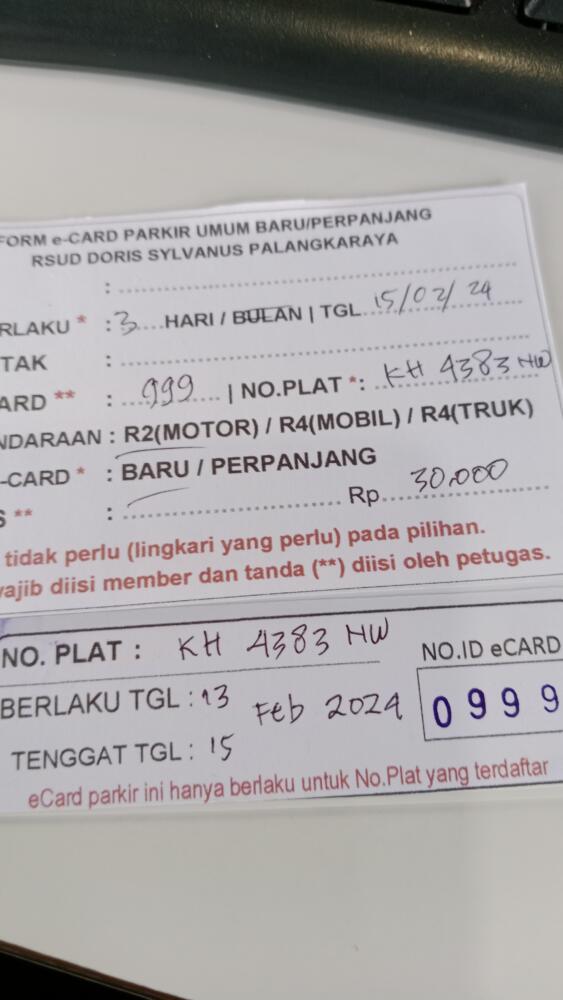 FORM e-CARD PARKIR UMUM BARU/PERPANJANG
RSUD DORIS SYLVANUS PALANGKARAYA
: ........
RLAKU * : 3 .... HARI / BULAN | TGL. 15/02/24
TAK : ........
ARD ** : 999 .... | NO.PLAT *: KH 4383 NW
NDARAAN : R2(MOTOR) / R4(MOBIL) / R4(TRUK)
-CARD * : BARU / PERPANJANG
S ** : ........ Rp. 30.000
tidak perlu (lingkari yang perlu) pada pilihan.
wajib diisi member dan tanda (**) diisi oleh petugas.
NO. PLAT : KH 4383 NW
NO.ID eCARD
BERLAKU TGL : 13 Feb 2024
0999
TENGGAT TGL : 15
eCard parkir ini hanya berlaku untuk No.Plat yang terdaftar